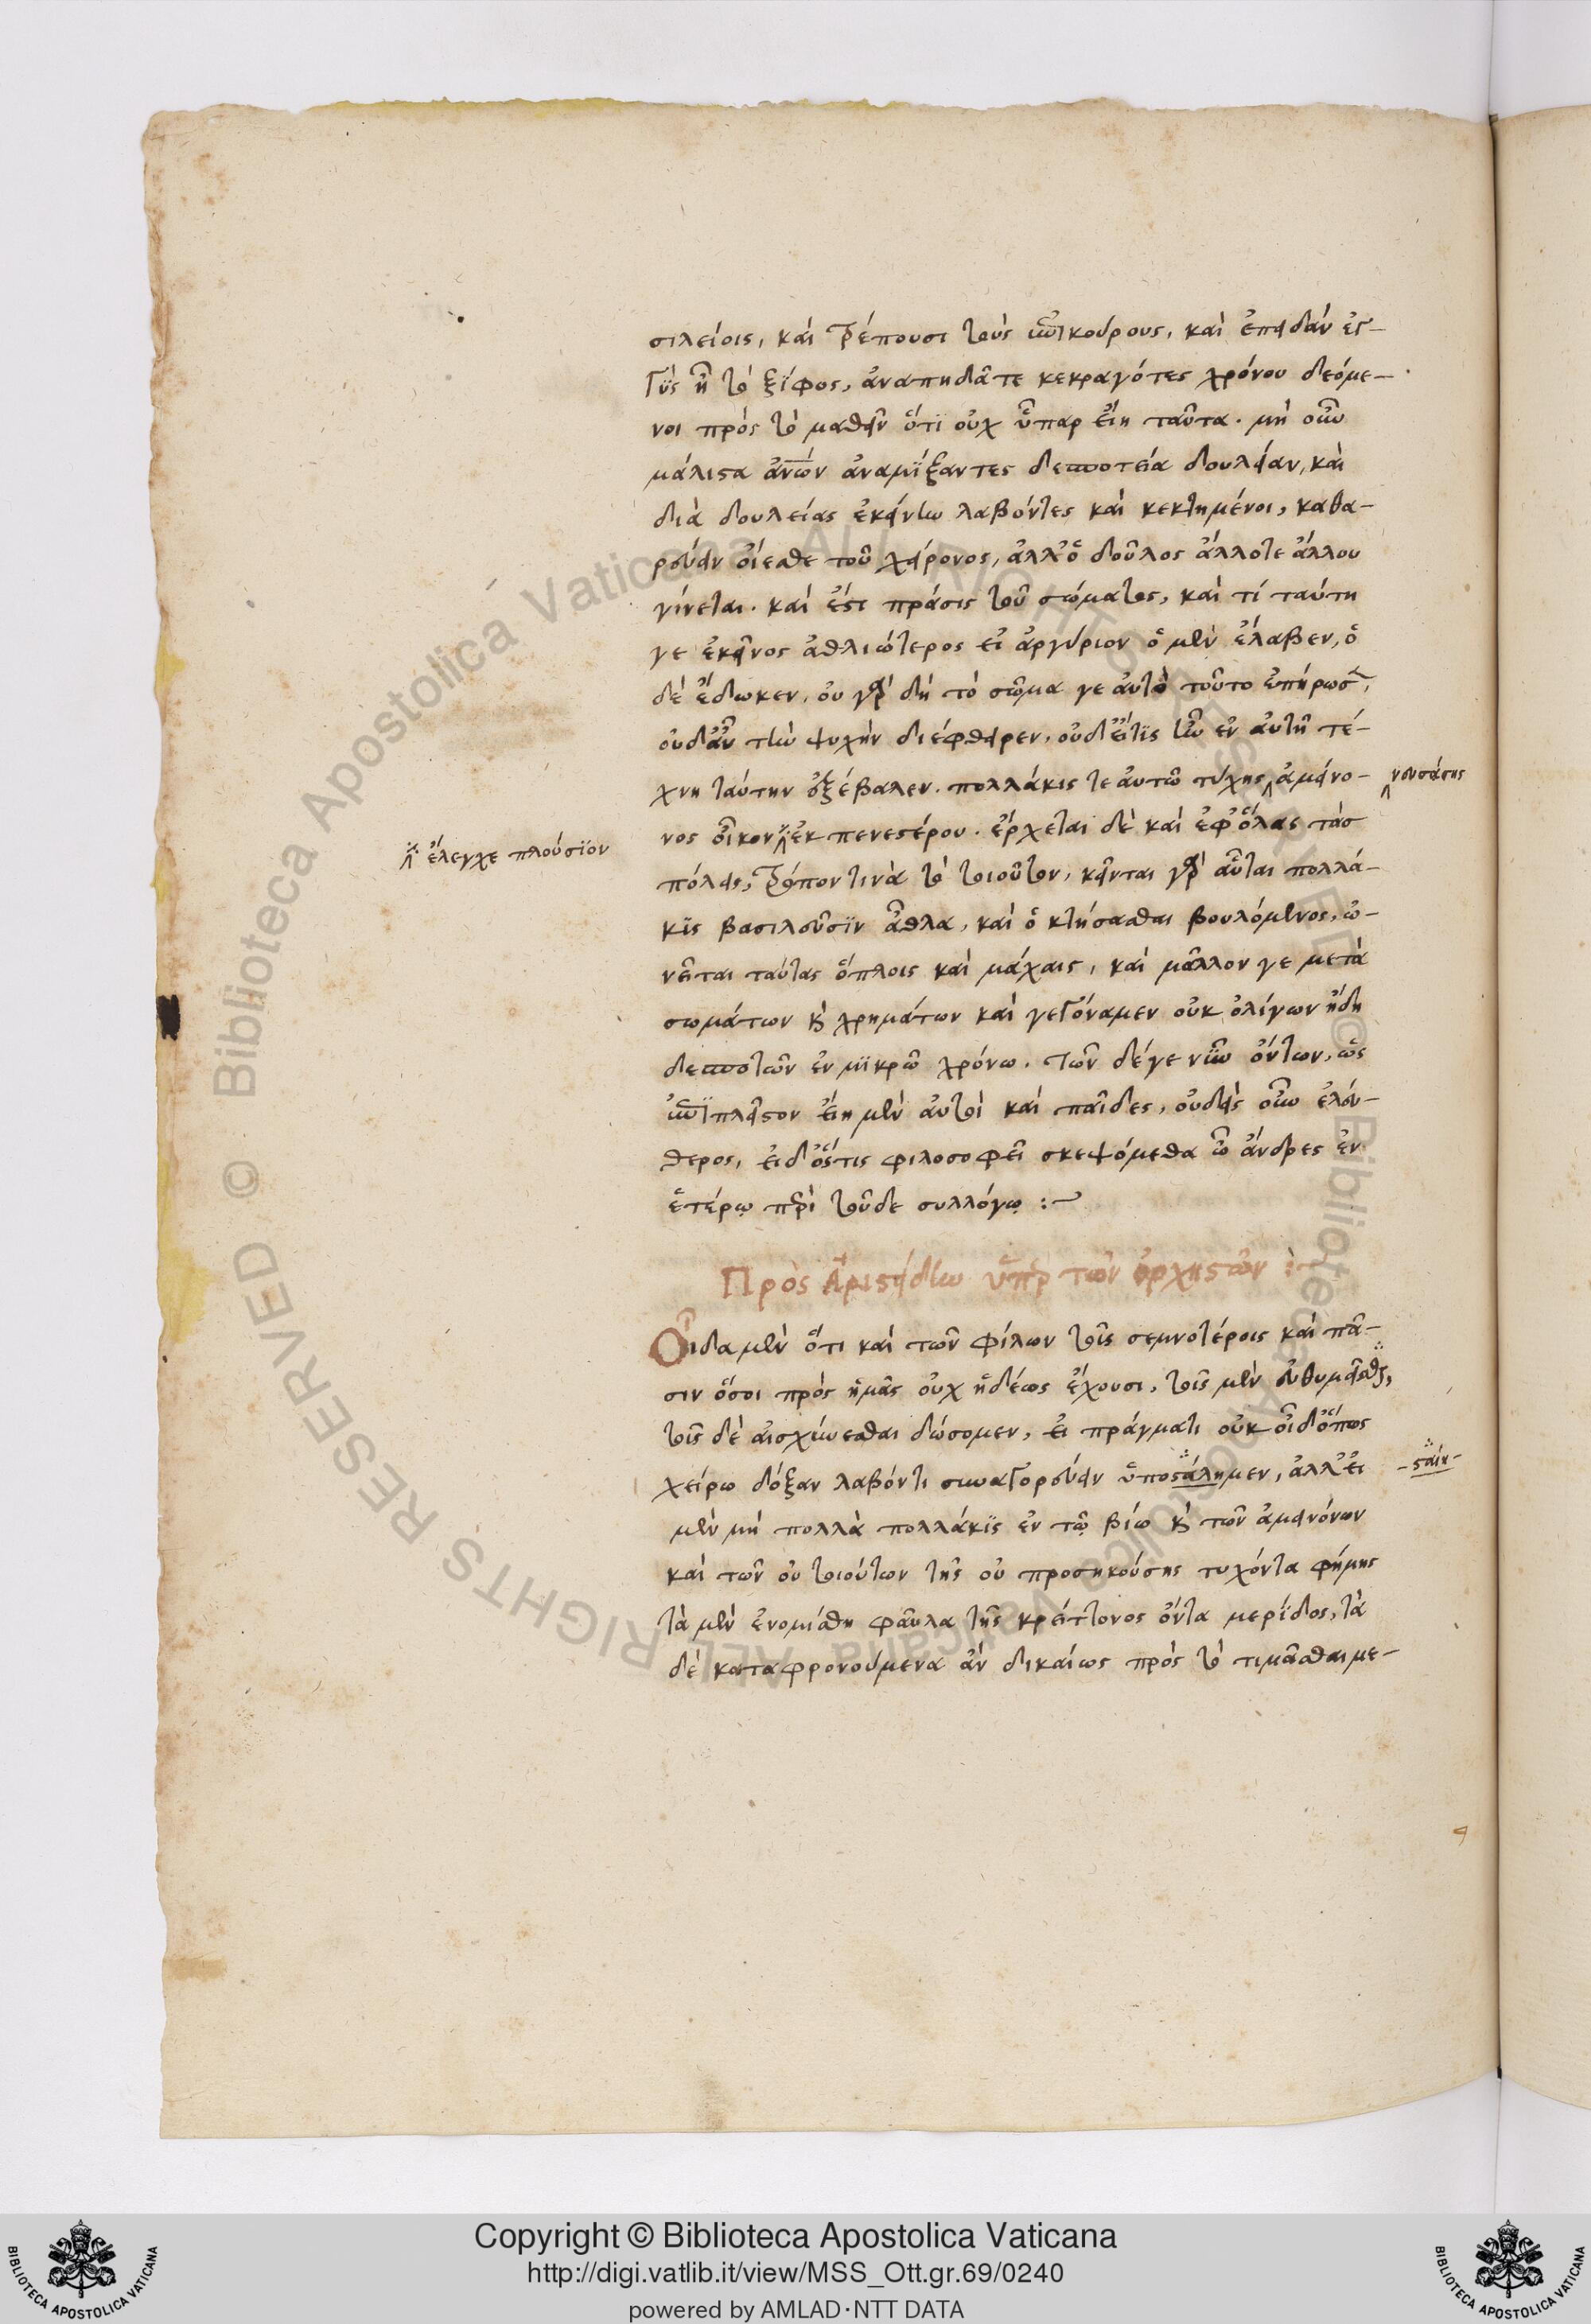 σιλείοις, καὶ τρέπουσι τοὺς ἐπικούρους, καὶ ἐπειδὰν ἐγ-
γὺς ᾖ τὸ ξίφος, ἀναπηδᾶτε κεκραγότες χρόνου δεόμε-
νοι πρὸς τὸ μαθεῖν ὅτι οὐχ ὕπαρ εἴη ταῦτα. μὴ οὖν
μάλιστα ἀνῶν ἀναμίξαντες δεσποτεία δουλείαν, καὶ
διὰ δουλείας ἐκείνην λαβόντες καὶ κεκτημένοι, καθα-
ρεύειν οἴεσθε τοῦ χείρονος, ἀλλ' ὁ δοῦλος ἄλλοτε ἄλλου
γίνεται. καὶ ἔστι πρᾶσις τοῦ σώματος, καὶ τί ταύτη
γε ἐκεῖνος ἀθλιώτερος εἰ ἀργύριον ὁ μὲν ἔλαβεν, ὁ
δὲ ἔδωκεν, οὐ γὰρ δὴ τὸ σῶμα γε αὐτὸ τοῦτο ἐπήρωσε,
οὐδ' ἂν τὴν ψυχὴν διέφθειρεν, οὐδ' εἴ τις ἦν ἐν αὐτῇ τέ-
χνη ταύτην ἐξέβαλεν. πολλάκις τε αὐτῶ τύχης ἀμείνο-
νευσάσης
νος οἶκον ἐκ πενεστέρου. ἔρχεται δὲ καὶ ἐφ' ὅλας τὰσ
ἔλεγχε πλούσϊον
πόλεις, τρόπον τινὰ τὸ τοιοῦτον, κεῖνται γὰρ αὗται πολλά-
κις βασιλεῦσϊν ἆθλα, καὶ ὁ κτήσασθαι βουλόμενος, ὠ-
νεῖται ταύτας ὅπλοις καὶ μάχαις, καὶ μᾶλλον γε μετὰ
σωμάτων ἢ χρημάτων καὶ γεγόναμεν οὐκ ὀλίγων ἤδη
δεσποτῶν ἐν μικρῶ χρόνω. τῶν δέ γε νῦν ὄντων, ὡς
ἐπιπλεῖστον εἴη μὲν αὐτοὶ καὶ παῖδες, οὐδεὶς οὖν ἐλεύ-
θερος, εἰ δ' ὅστις φιλοσοφεῖ σκεψόμεθα ὦ ἄνδρες ἐν
ἑτέρῳ περὶ τοῦδε συλλόγῳ :~
Πρὸς Ἀριστείδην ὑπὲρ τῶν ὀρχηστῶν :~
Οἶδα μὲν ὅτι καὶ τῶν φίλων τοῖς σεμνοτέροις καὶ πᾶ-
σιν ὅσοι πρὸς ἡμᾶς οὐχ ἡδέως ἔχουσι, τοῖς μὲν εὐθυμεῖσθαι,
τοῖς δὲ αἰσχύνεσθαι δώσομεν, εἰ πράγματι οὐκ οἶδ' ὅπως
χείρω δόξαν λαβόντι συναγορεύειν ὑποσταίλημεν, ἀλλ' εἰ
-σταίν-
μὲν μὴ πολλὰ πολλάκϊς ἐν τῷ βίω καὶ τῶν ἀμεινόνων
καὶ τῶν οὐ τοιούτων τῆς οὐ προσηκούσης τυχόντα φήμης
τὰ μὲν ἐνομίσθη φαῦλα τῆς κρείττονος ὄντα μερίδος, τὰ
δὲ καταφρονούμενα ἂν δικαίως πρὸς τὸ τιμᾶσθαι με-
© Biblioteca Apostolica Vaticana ALL RIGHTS RESERVED
© Biblioteca Apostolica Vaticana ALL RIGHTS RESERVED
Copyright © Biblioteca Apostolica Vaticana
http://digi.vatlib.it/view/MSS_Ott.gr.69/0240
powered by AMLAD·NTT DATA
BIBLIOTECA APOSTOLICA VATICANA
BIBLIOTECA APOSTOLICA VATICANA